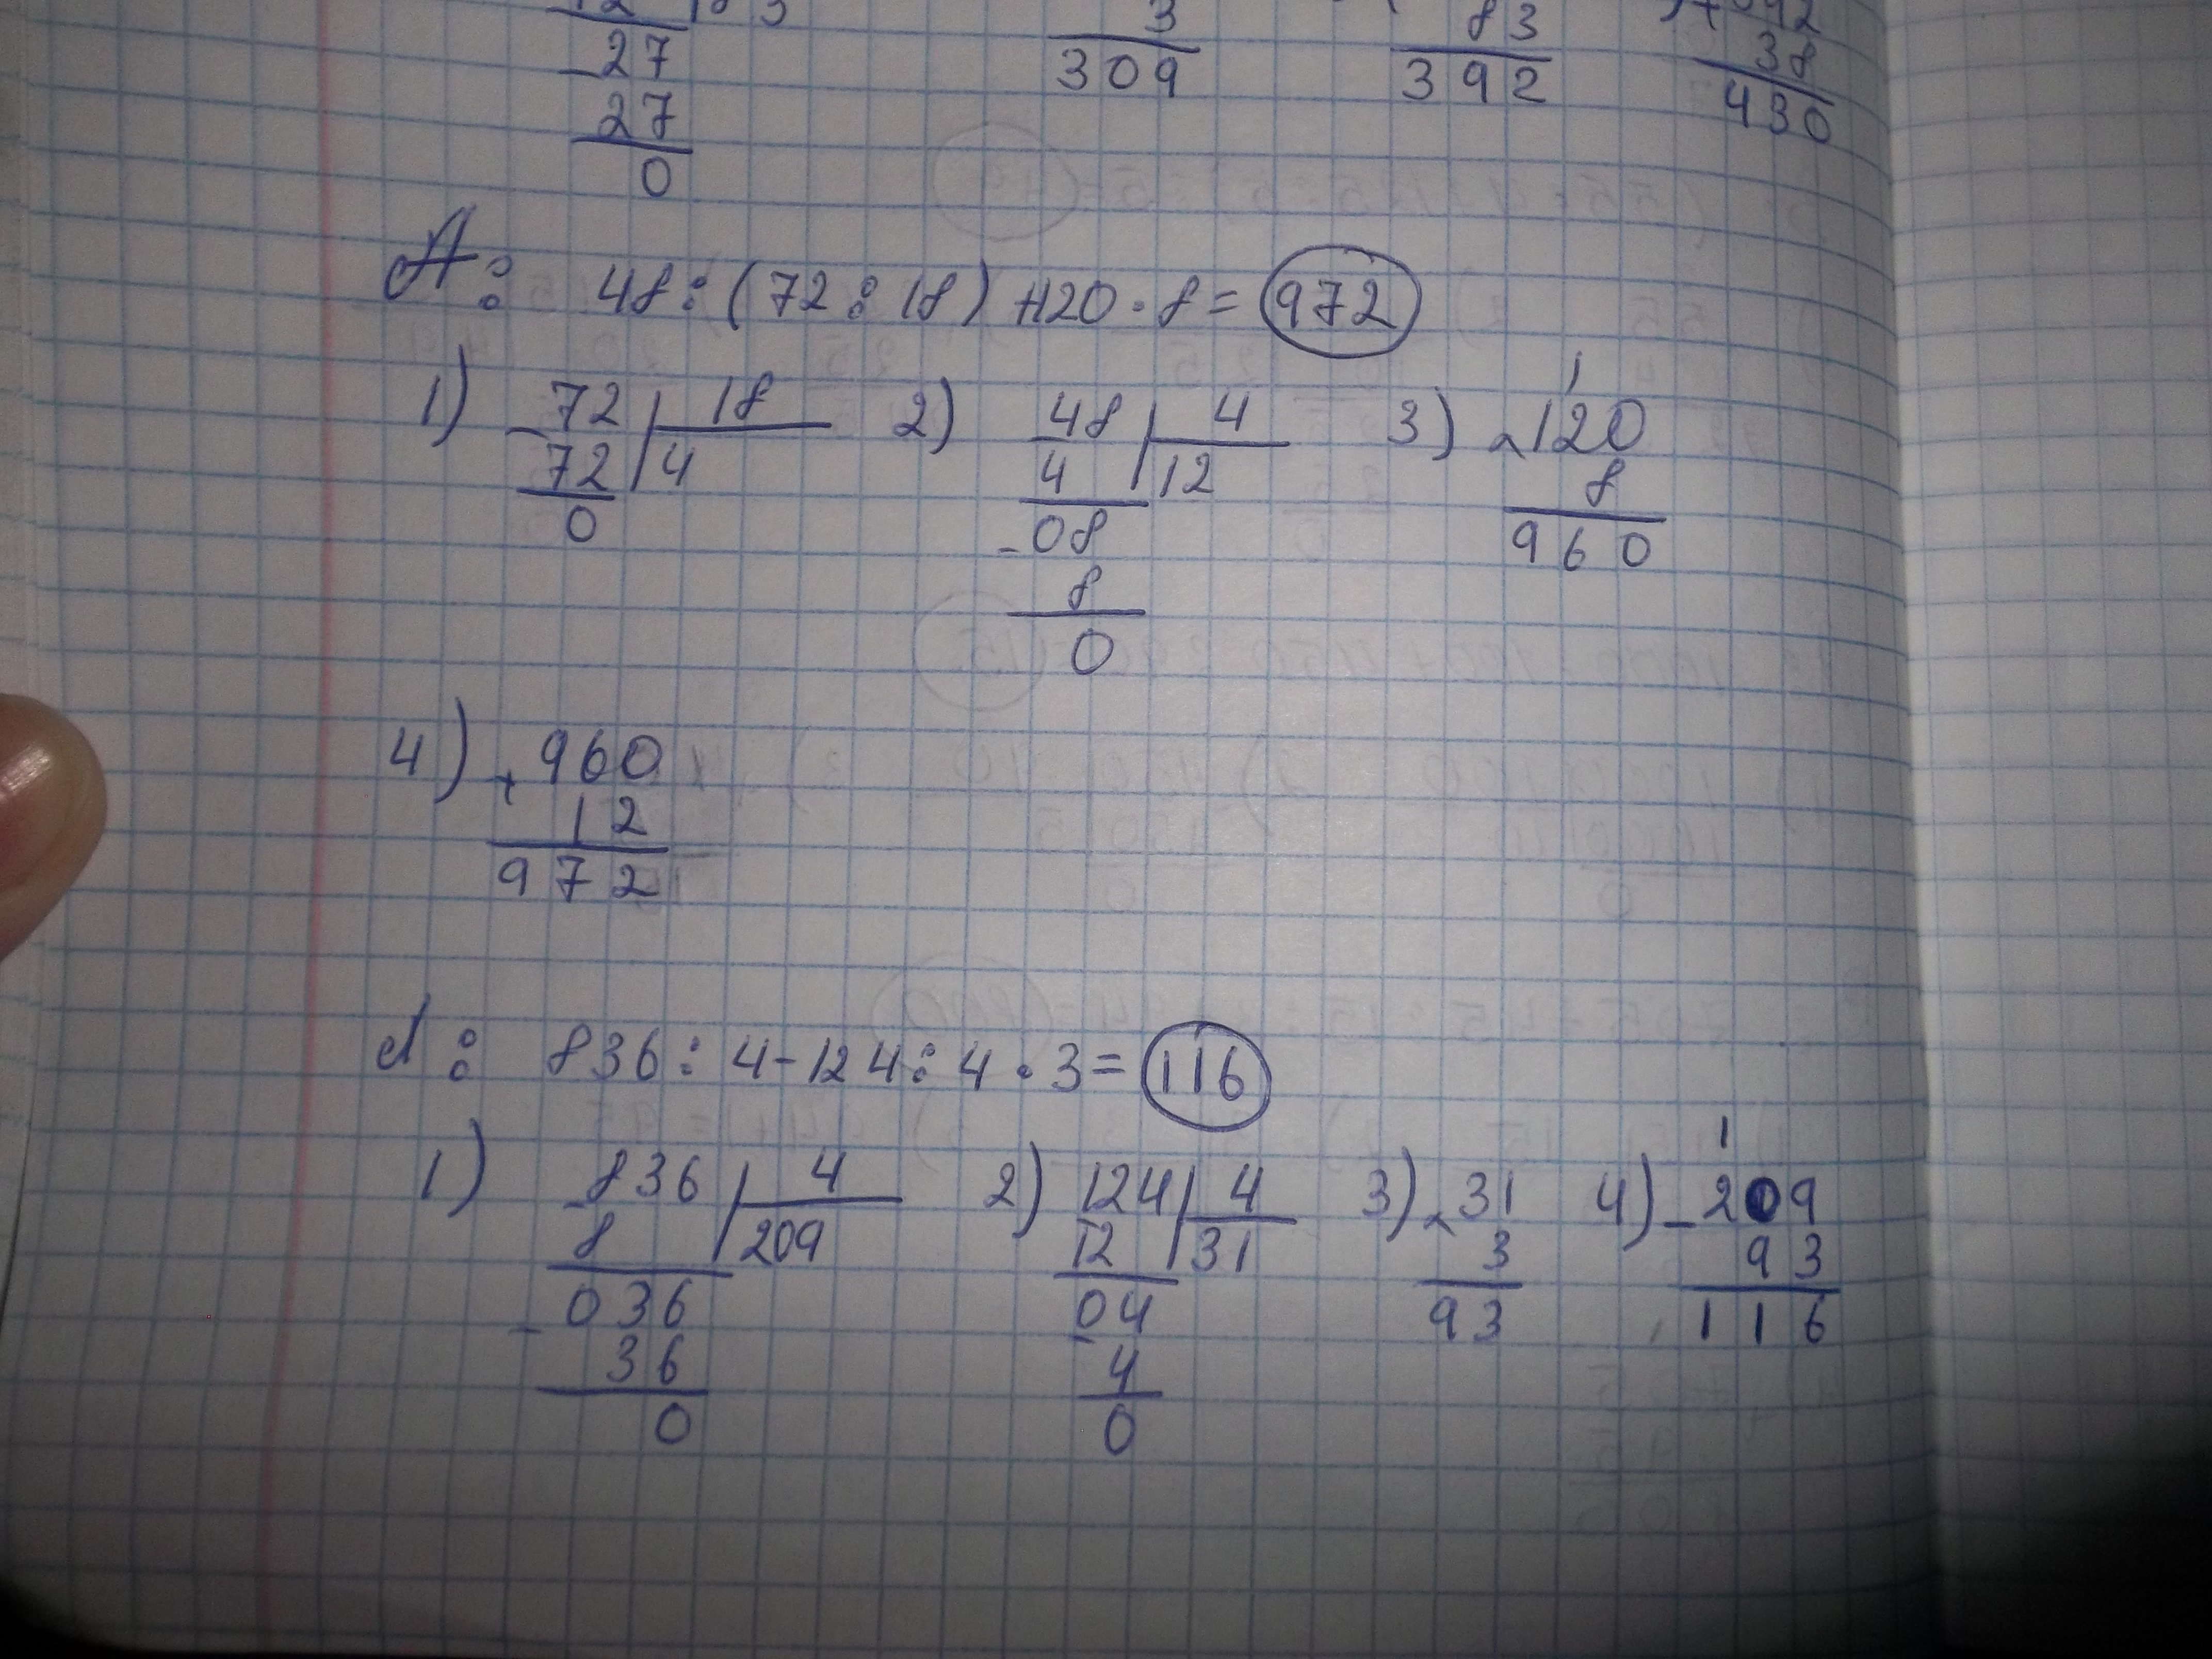 27 3 83 38
27 309 392 430
0
А: 48:(72:18)+120·8=972
1) 72 18 2) 48 4 3) 1
72 4 4 12 ×120
0 -08 8
8 960
0
4) +960
12
972
d: 836:4-124:4·3=116
1) -836 4 2) 124 4 3) ×31 4) 1
8 209 12 31 3 -209
-036 -04 93 93
36 4 116
0 0